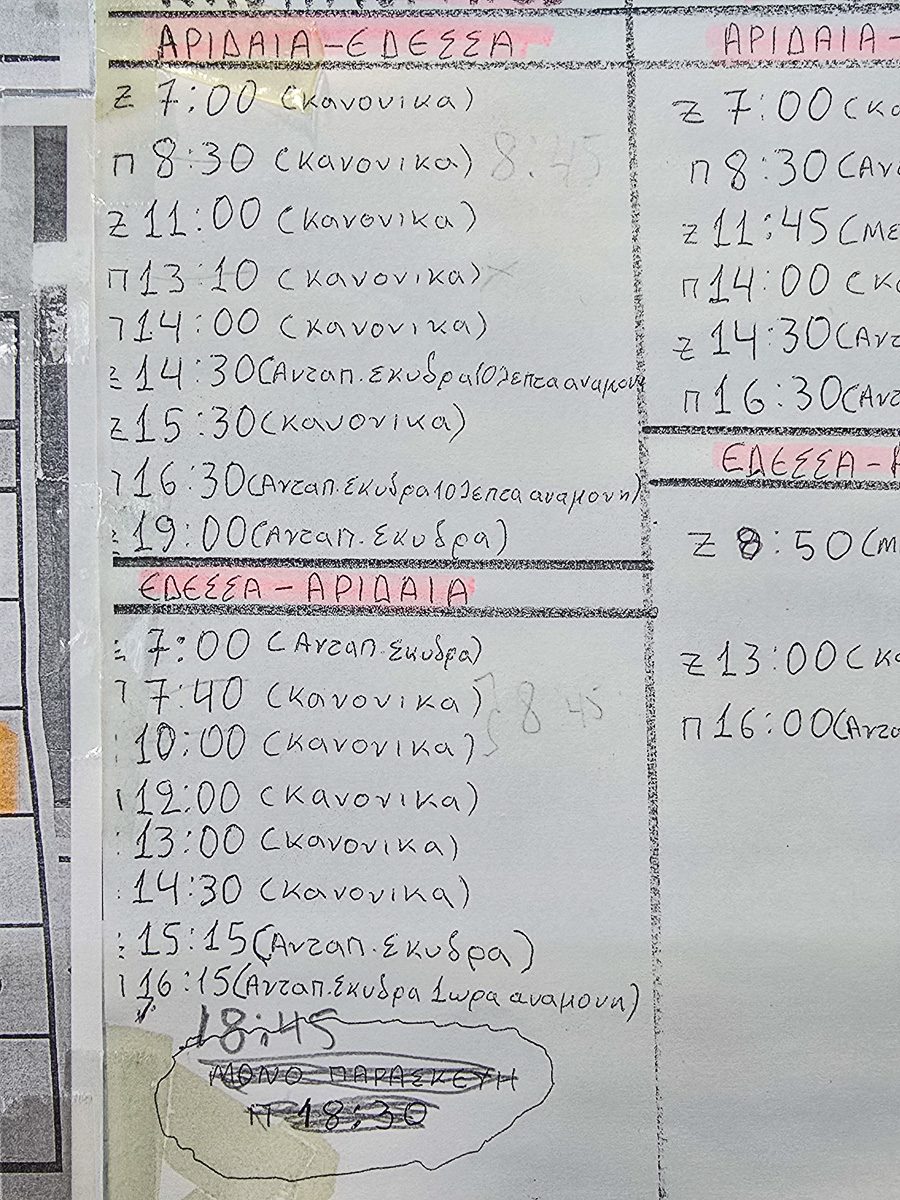 ΑΡΙΔΑΙΑ-ΕΔΕΣΣΑ
Ζ 7:00 (κανονικα)
π 8:30 (κανονικα) 8:45
Ζ 11:00 (κανονικα)
π 13:10 (κανονικα)
π 14:00 (κανονικα)
Ζ 14:30 (Ανταπ. Σκυδρα 10 λεπτα αναμον
Ζ 15:30 (κανονικα)
π 16:30 (Ανταπ. Σκυδρα 10 λεπτα αναμονη)
Ζ 19:00 (Ανταπ. Σκυδρα)
ΕΔΕΣΣΑ-ΑΡΙΔΑΙΑ
7:00 (Ανταπ. Σκυδρα)
7:40 (κανονικα) 8:45
10:00 (κανονικα)
12:00 (κανονικα)
13:00 (κανονικα)
14:30 (κανονικα)
15:15 (Ανταπ. Σκυδρα)
16:15 (Ανταπ. Σκυδρα 1 ωρα αναμονη)
18:45
ΜΟΝΟ ΠΑΡΑΣΚΕΥΗ
π 18:30
ΑΡΙΔΑΙΑ-
Ζ 7:00 (κα
π 8:30 (Αν
Ζ 11:45 (με
π 14:00 (κ
Ζ 14:30 (Αντ
π 16:30 (Αντ
ΕΔΕΣΣΑ-Α
Ζ 8:50 (μ
Ζ 13:00 (κα
π 16:00 (Αντα